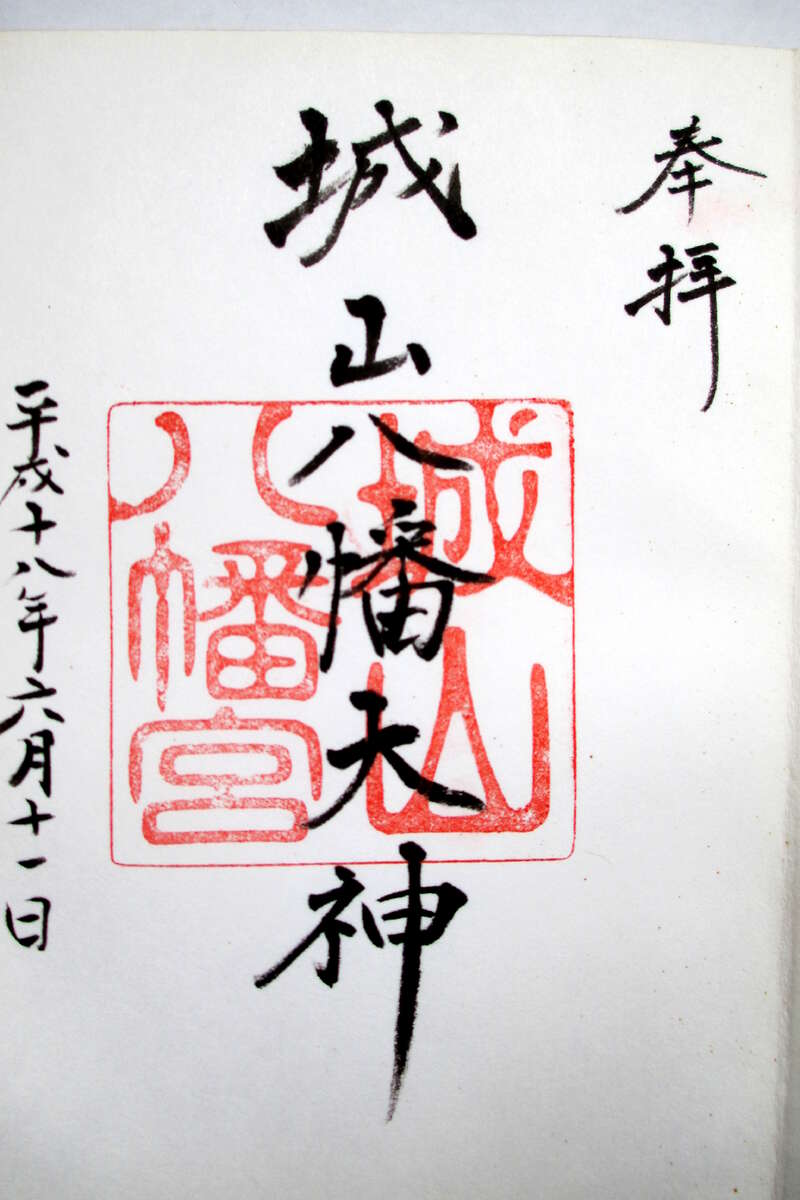 奉拝
城山八幡大神
城山八幡宮
平成十八年六月十一日